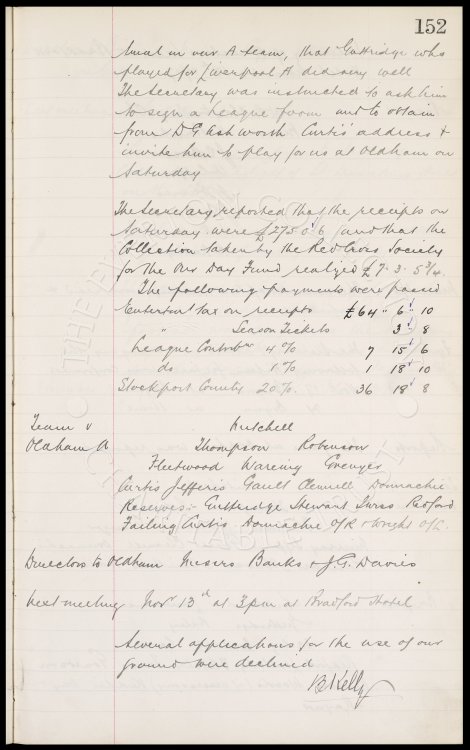 152
trial in our A team, that Guttridge who
played for Liverpool A did very well
The Secretary was instructed to ask him
to sign a League form and to obtain
from D G Ashworth Curtis' address &
invite him to play for us at Oldham on
Saturday
The Secretary reported that the receipts on
Saturday were £275 0 6 and that the
Collection taken by the Red Cross Society
for the Our Day Fund realized £7. 3. 5¾.
The following payments were passed
Entertmt tax on receipts £64 " 6 10
" Season Tickets 3 8
League Contrib'n 4% 7 15 6
do 1% 1 18 10
Stockport County 20%. 36 18 8
Team v Mitchell
Oldham A Thompson Robinson
Fleetwood Wareing Grenyer
Curtis Jefferis Gault Clennell Donnachie
Reserves:- Guttridge Stewart Rexford
Failing Curtis - Donnachie O/R & Wright O/L.
Directors to Oldham Messrs Banks & J. G. Davies
Next meeting Novr 13th at 3pm at Bradford Hotel
Several applications for the use of our
ground were declined
B Kelly